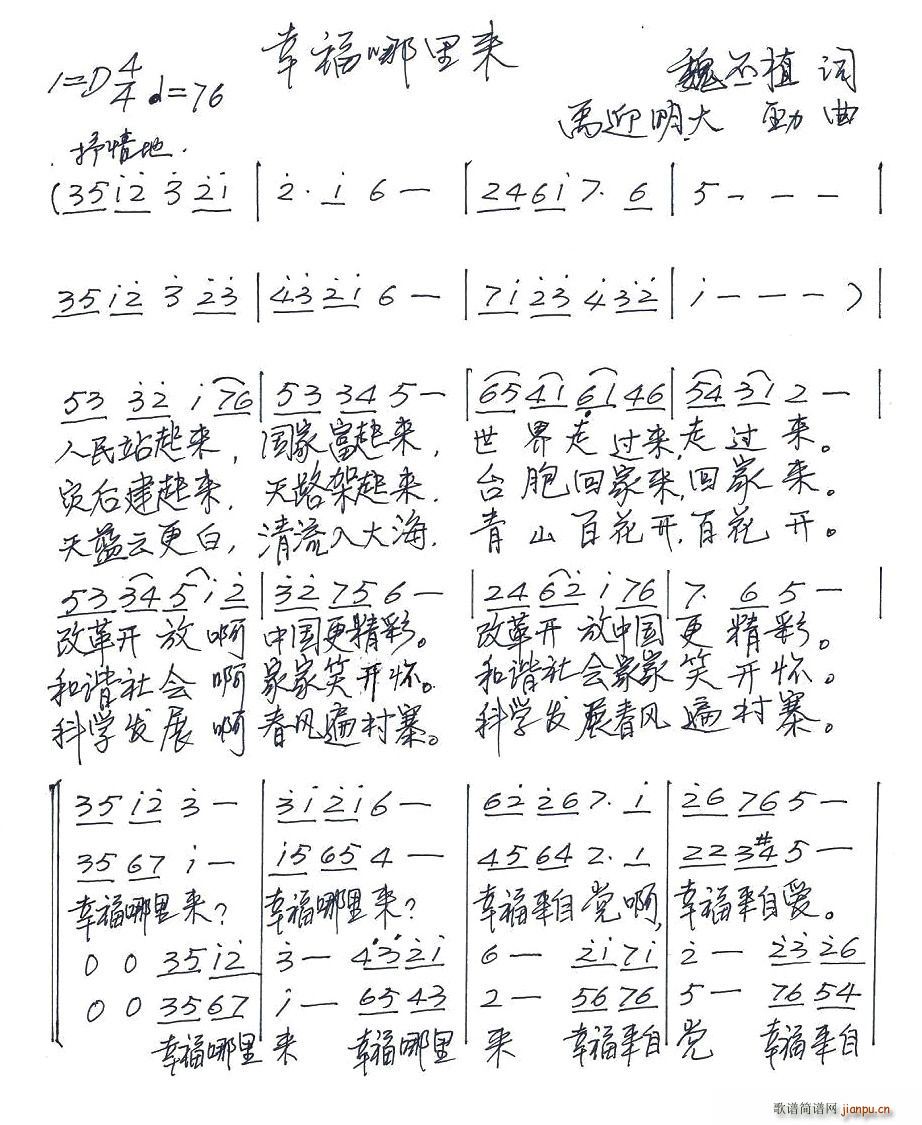 幸福哪里来
1=D 4/4 ♩=76
魏丕植 词
禹迎明 大勁 曲
抒情地.
(35 i̇2̇ 3̇ 2̇i̇ | 2̇. i̇ 6 — | 246i̇ 7. 6 | 5 — — — |
35 i̇2̇ 3̇ 2̇3̇ | 4̇3̇ 2̇i̇ 6 — | 7i̇ 2̇3̇ 4̇ 3̇2̇ | i̇ — — — ) |
53 3̇2̇ i̇ 76 | 53 34 5 — | 65 41 6̣1 46 | 54 31 2 — |
人民站起来, 国家富起来, 世界走过来,走过来。
灾后建起来, 天路架起来, 台胞回家来,回家来。
天蓝云更白, 清流入大海, 青山百花开,百花开。
53 34 5 i̇ 2̇ | 3̇2̇ 75 6 — | 24 62̇ i̇ 76 | 7. 6 5 — |
改革开放啊 中国更精彩。 改革开放中国更精彩。
和谐社会啊 家家笑开怀。 和谐社会家家笑开怀。
科学发展啊 春风遍村寨。 科学发展春风遍村寨。
35 i̇2̇ 3̇ — | 3̇i̇ 2̇i̇ 6 — | 62̇ 2̇6 7. i̇ | 2̇6 76 5 — |
35 67 i̇ — | i̇5 65 4 — | 45 64 2. 1 | 22 3#4 5 — |
幸福哪里来? 幸福哪里来? 幸福来自党啊, 幸福来自爱。
0 0 35 i̇2̇ | 3̇ — 4̇3̇ 2̇i̇ | 6 — 2̇i̇ 7i̇ | 2̇ — 2̇3̇ 2̇6 |
0 0 35 67 | i̇ — 65 43 | 2 — 56 76 | 5 — 76 54 |
幸福哪里 来 幸福哪里 来 幸福来自 党 幸福来自
歌谱简谱网 jianpu.cn